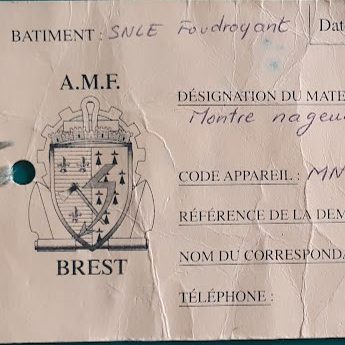 BATIMENT : SNLE Foudroyant
Date
A.M.F.
DÉSIGNATION DU MATE
Montre nageu
CODE APPAREIL : MN
RÉFÉRENCE DE LA DEM
NOM DU CORRESPONDA
BREST
TÉLÉPHONE :